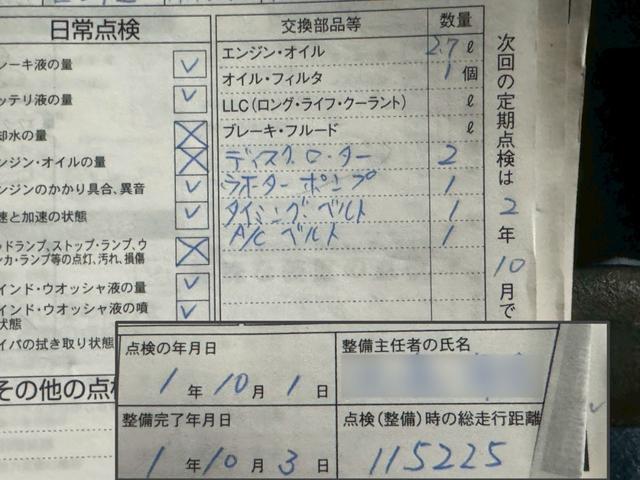 日常点検
レーキ液の量
ッテリ液の量
却水の量
ンジン・オイルの量
ンジンのかかり具合、異音
速と加速の状態
ッドランプ、ストップ・ランプ、ウ
ンカ・ランプ等の点灯、汚れ、損傷
インド・ウオッシャ液の量
インド・ウオッシャ液の噴
状態
イパの拭き取り状態
その他の点検
交換部品等 数量
エンジン・オイル 2.7 ℓ
オイル・フィルタ 1 個
LLC(ロング・ライフ・クーラント) ℓ
ブレーキ・フルード ℓ
ディスクローター 2
ラオーターポンプ 1
タイミングベルト 1
A/Cベルト 1
次回の定期点検は2年10月で
点検の年月日
1年10月1日
整備主任者の氏名
整備完了年月日
1年10月3日
点検(整備)時の総走行距離
115225